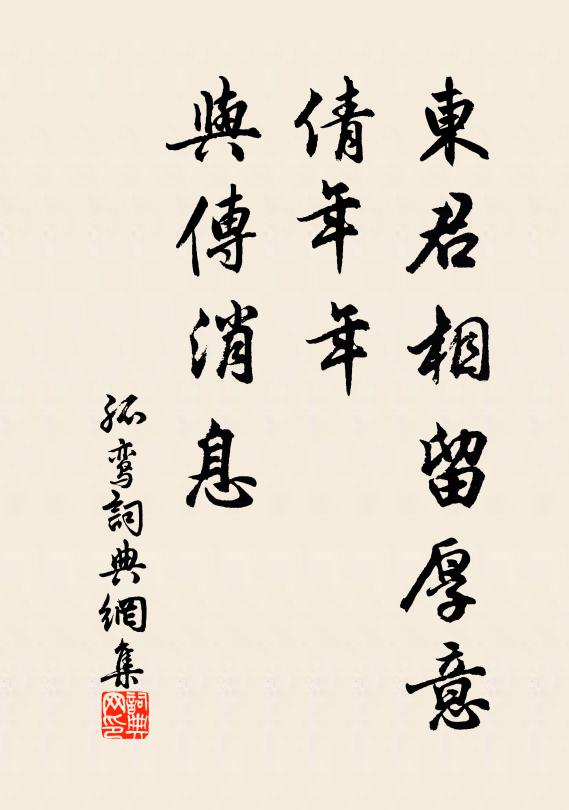 東君相留厚意
倩年年
與傳消息
孤鸞詞典網集
詞典网印